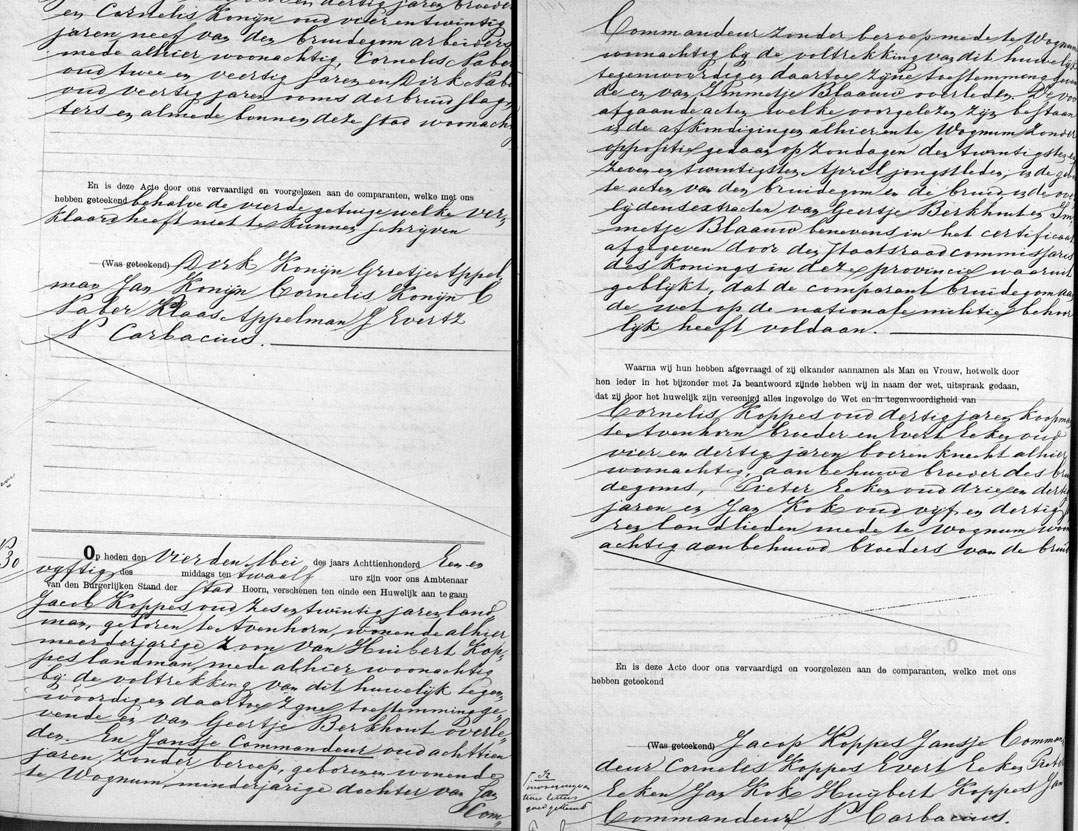 en Cornelis Konijn oud vier en twintig
jaren neef van den bruidegom arbeiders
mede alhier woonachtig, Cornelis Naber
oud twee en veertig jaren en Dirk Nabe
oud veertig jaren ooms der bruid slag,
ters en almede binnen deze stad woonach
En is deze Acte door ons vervaardigd en voorgelezen aan de comparanten, welke met ons
hebben geteekend behalve de vierde getuige welke ver,
klaard heeft niet te kunnen schrijven
(Was geteekend) Dirk Konijn Grietje Appel
man Jan Konijn Cornelis Konijn C
Naber Klaas Appelman J Evertz
N Carbacius.
No 30
Op heden den vierden Mei des jaars Achttienhonderd Een en
vyftig des middags ten twaalf ure zijn voor ons Ambtenaar
van den Burgerlijken Stand der stad Hoorn, verschenen ten einde een Huwelijk aan te gaan
Jacob Koppes oud zes en twintig jaren land
man, geboren te Avenhorn, wonende alhier
meerderjarige Zoon van Huibert Kop-
pes landman, mede alhier woonachtig
bij de voltrekking van dit huwelijk tegen,
woordig en daartoe zijne toestemming ge,
vende en van Geertje Berkhout overle,
den. En Jansje Commandeur oud achttien
jaren, zonder beroep, geboren en wonende
te Wognum, minderjarige dochter van Jan
Com,
Commandeur zonder beroep mede te Wognum
woonachtig bij de voltrekking van dit huwelijk
tegenwoordig en daartoe zijne toestemming geven
de en van Immetje Blaauw overleden. De voor
afgaande acten welke voorgelezen zijn bestaan
in de afkondigingen alhier en te Wognum zonder
oppositie gedaan op Zondagen den twintigsten en
zeven en twintigsten April jongstleden, in de geboor
te acten van den bruidegom en de bruid in de over
lijdens extracten van Geertje Berkhout en Im,
metje Blaauw benevens in het certificaat
afgegeven door den Staatsraad commissaris
des Konings in deze provincie waaruit
geblijkt, dat de comparant bruidegom aan
de wet op de nationale militie behoor
lijk heeft voldaan.
Waarna wij hun hebben afgevraagd of zij elkander aannamen als Man en Vrouw, hetwelk door
hen ieder in het bijzonder met Ja beantwoord zijnde hebben wij in naam der wet, uitspraak gedaan,
dat zij door het huwelijk zijn vereenigd alles ingevolge de Wet en in tegenwoordigheid van
Cornelis Koppes oud dertig jaren koopman
te Avenhorn broeder en Evert Ecken oud
vier en dertig jaren boerenknecht alhier
woonachtig, aanbehuwd broeder des brui
degoms, Pieter Ecken oud drie en dertig
jaren en Jan Kok oud vijf en dertig ja
ren landlieden mede te Wognum woon
achtig aanbehuwd broeders van de bruid
En is deze Acte door ons vervaardigd en voorgelezen aan de comparanten, welke met ons
hebben geteekend
(Was geteekend) Jacob Koppes Jansje Comman
deur Cornelis Koppes Evert Ecken Pieter
Ecken Jan Kok Huijbert Koppes Jan
Commandeur N Carbacius.